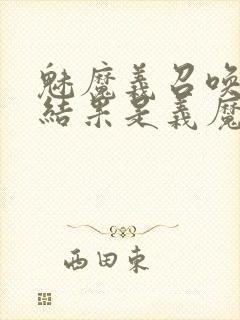 魅魔義召喚
結果是義魔
西田東